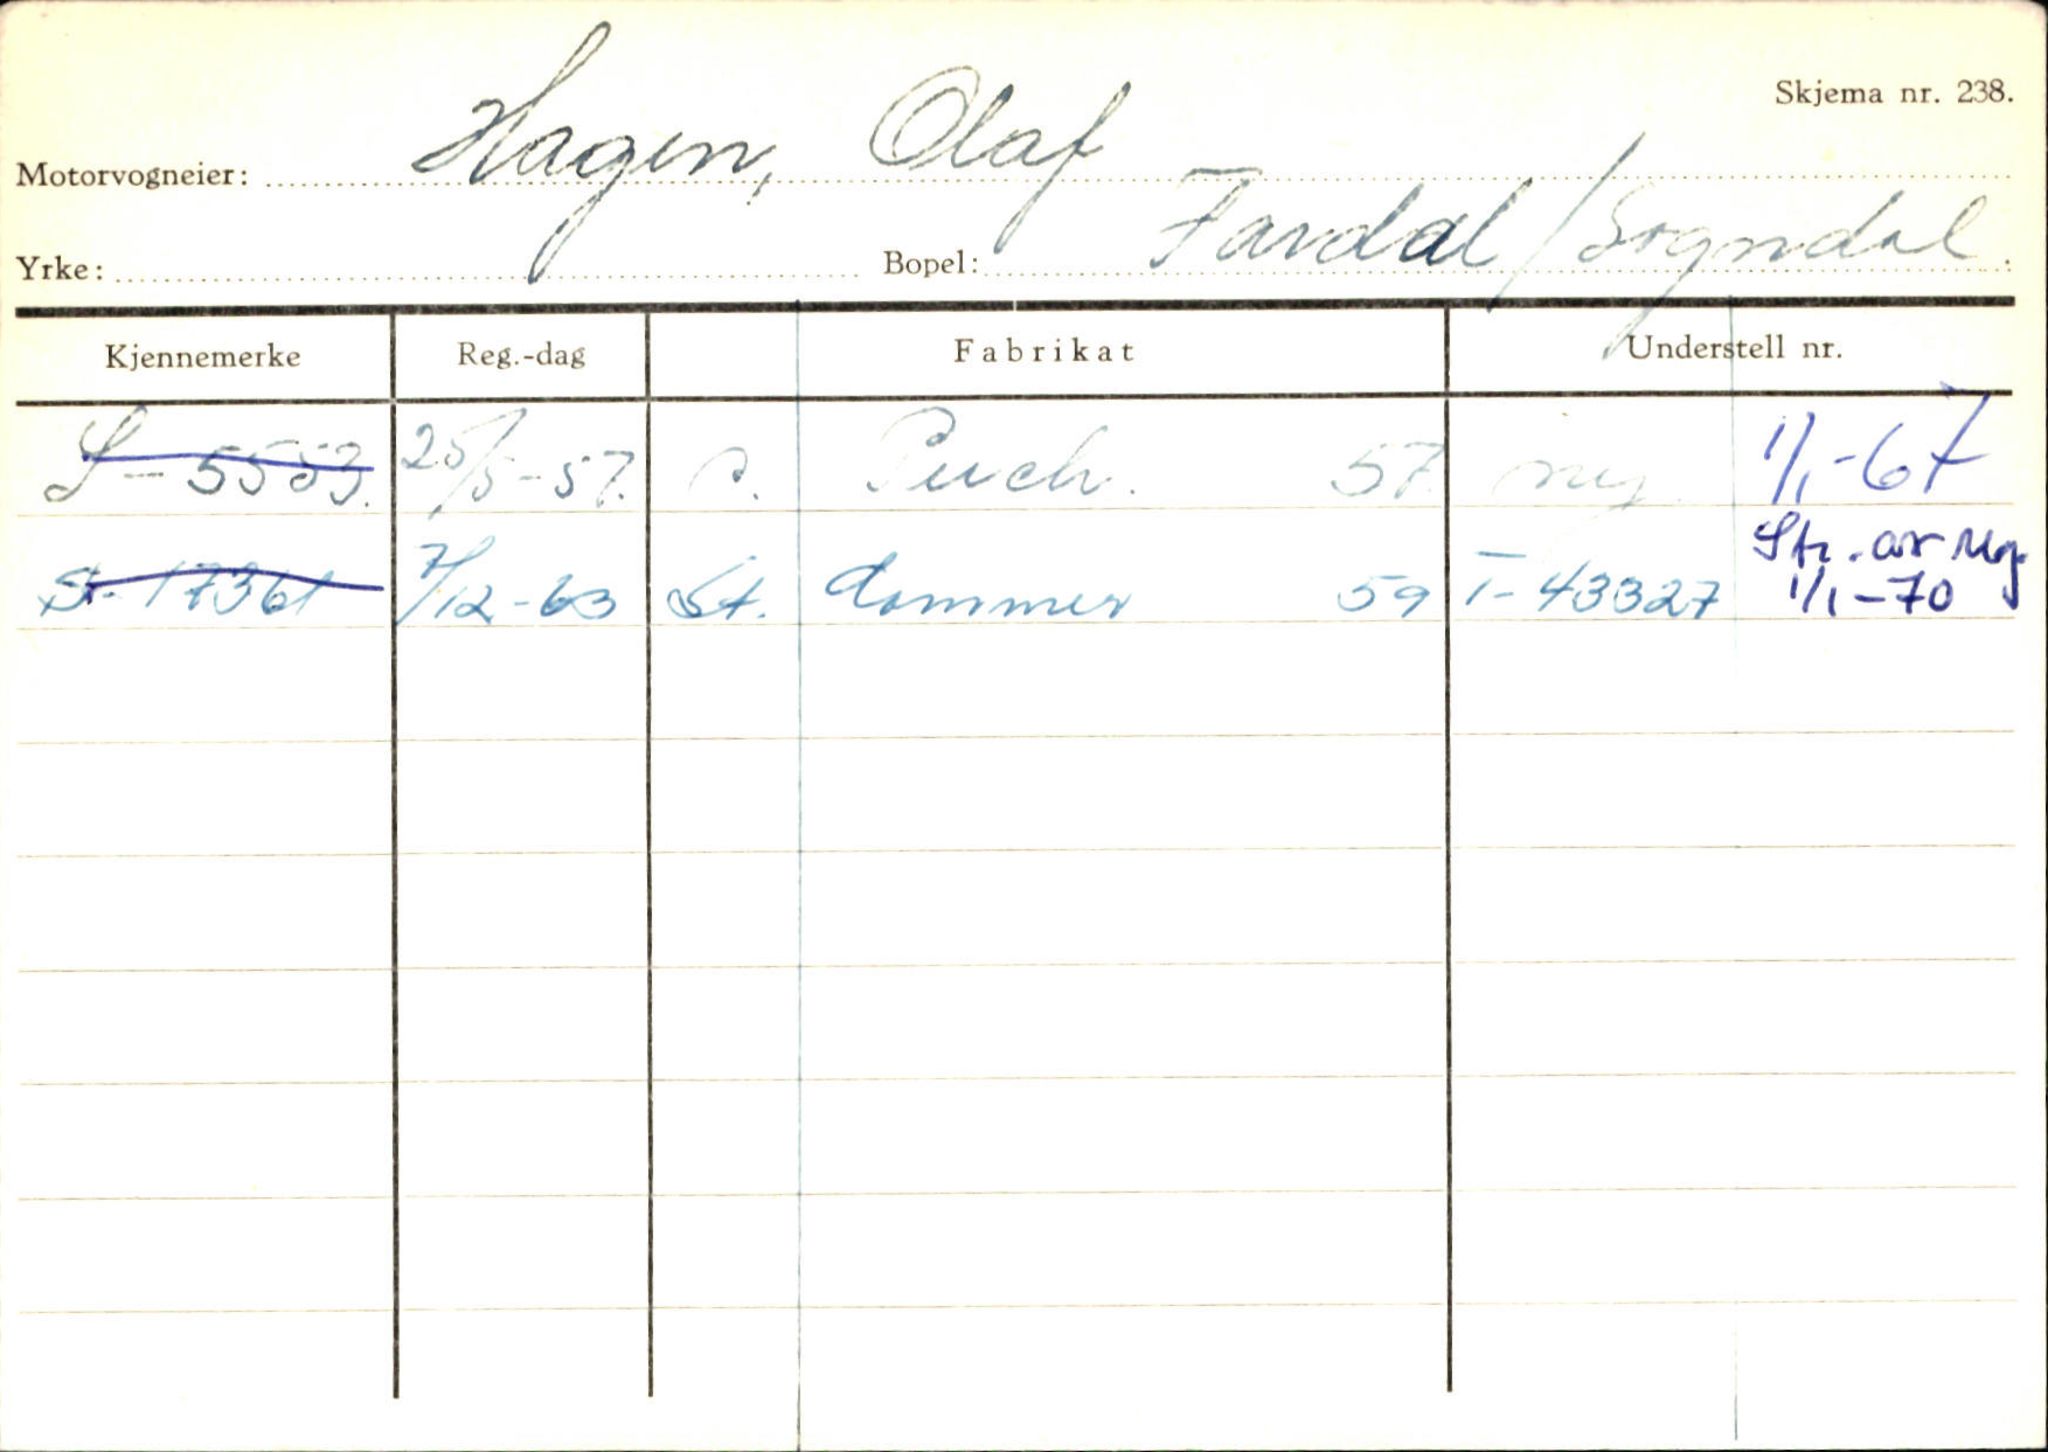 Skjema nr. 238.
Motorvogneier: Hagen, Olaf
Yrke: Bopel: Fardal / Sogndal.
Kjennemerke Reg.-dag Fabrikat Understell nr.
S-5553. 25/5-57. s. Puch. 57. ny. 1/1-67
S-17361 7/12-63 St. Commer 59 T-43327 Str. av reg.
1/1-70